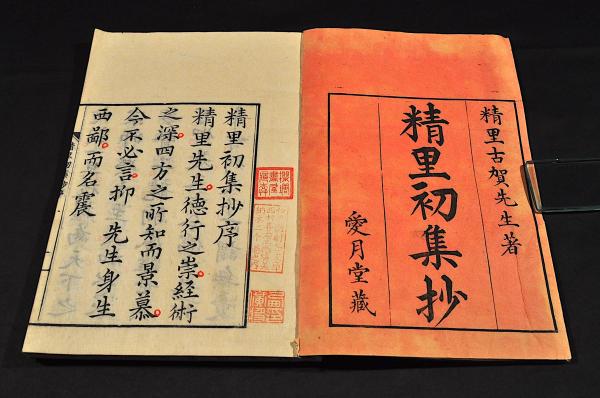 精里古賀先生著
精里初集抄
愛月堂藏
精里初集抄序
精里先生德行之崇經術
之深四方之所知而景慕
今不必言抑 先生身生
西鄙而名震